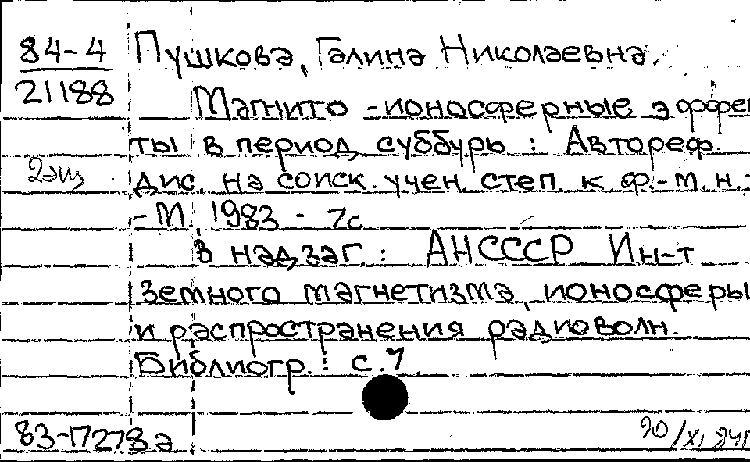 84-4
21188
Пушкова, Галина Николаевна.
Магнито-ионосферные эффек
ты в период суббурь : Автореф.
2экз
дис. на соиск. учен. степ. к. ф.-м. н.:
- М, 1983 - 7с
В надзаг.: АНСССР Ин-т
земного магнетизма, ионосферы
и распространения радиоволн.
Библиогр.: с.7
83-17278а
20/XI 84г